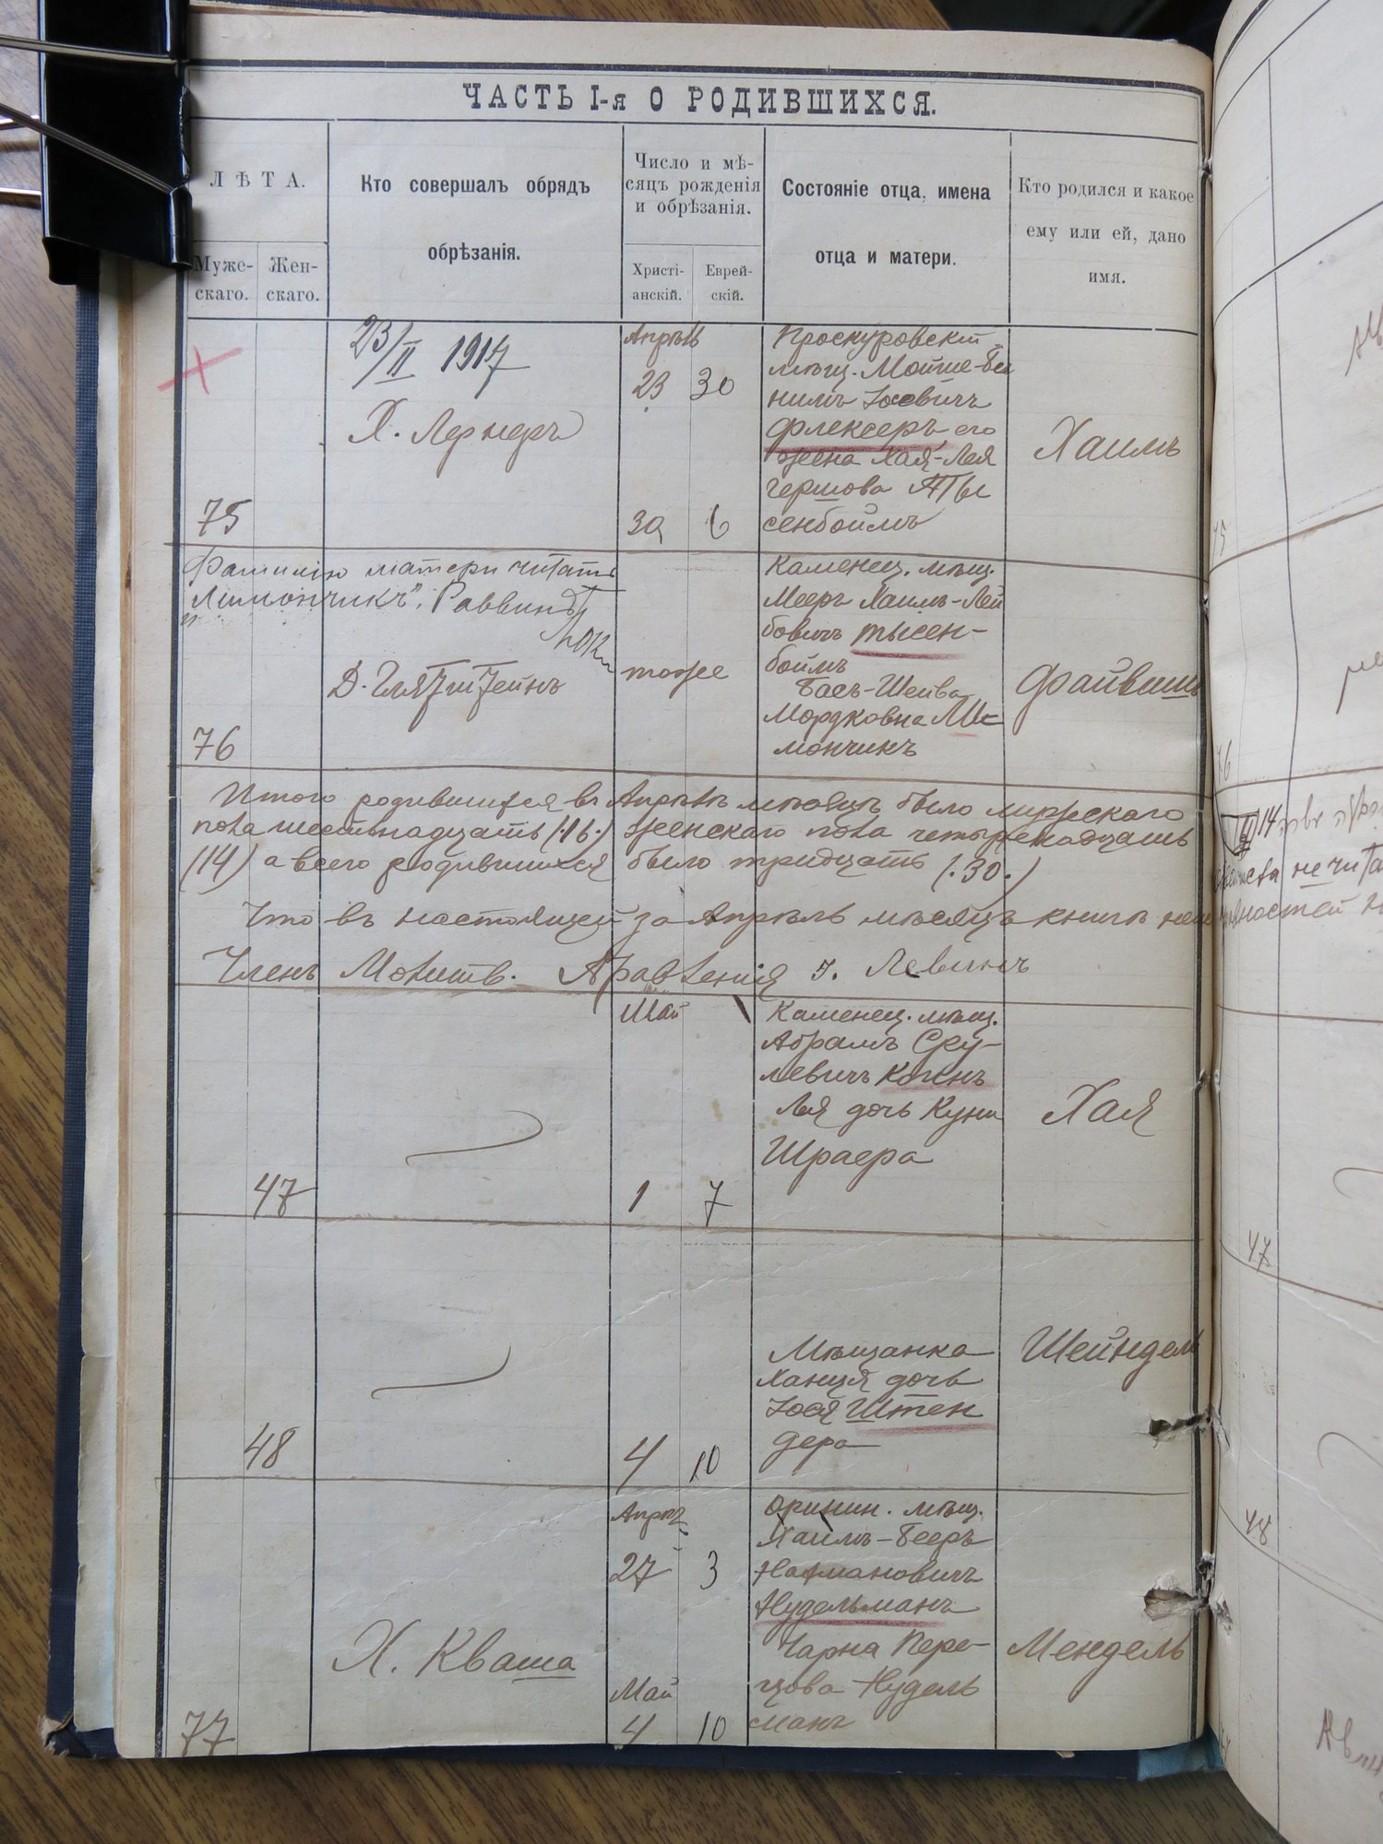 ЧАСТЬ I-я О РОДИВШИХСЯ.
ЛѢТА.
Муже-
скаго.
Жен-
скаго.
Кто совершалъ обрядъ
обрѣзанія.
Число и мѣ-
сяцъ рожденія
и обрѣзанія.
Христі-
анскій.
Еврей-
скій.
Состояніе отца, имена
отца и матери.
Кто родился и какое
ему или ей, дано
имя.
75
23/II 1917
Х. Лернеръ
Апрѣль
23 30
30 6
Проскуровскій
мѣщ. Мойше-Бе
нимъ Іосевичъ
Флексеръ, его
жена Хая-Лея
Гершова Ты
сенбоймъ
Хаимъ
Фамилію матери читать
"Лимончикъ". Раввинъ
76
Д. Гляйтштейнъ
тоже
Каменец. мѣщ.
Мееръ Хаимъ-Лей
бовичъ Тысен-
боймъ
Бась-Шейва
Мордковна Ли-
мончикъ
Файвишъ
Итого родившихся въ Апрѣлѣ мѣсяцѣ было мужескаго
пола шестьнадцать (.16.) женскаго пола четырнадцать
(14) а всего родившихся было тридцать (.30.)
Что въ настоящей за Апрѣль мѣсяцъ книгѣ
Членъ Молитв. Правленія Левинъ
47
Май
1 7
Каменец. мѣщ.
Абрамъ Сру-
левичъ Когенъ
Лея дочь Куни
Шраера
Хая
48
4 10
Мѣщанка
Ханця дочь
Іося Штен
дера
Шейндель
77
Х. Кваша
Апрѣль
27 3
Май
4 10
Оринин. мѣщ.
Хаимъ-Бееръ
Нахмановичъ
Нудельманъ
Чарна Пере-
цова Нудель
манъ
Мендель
47
48